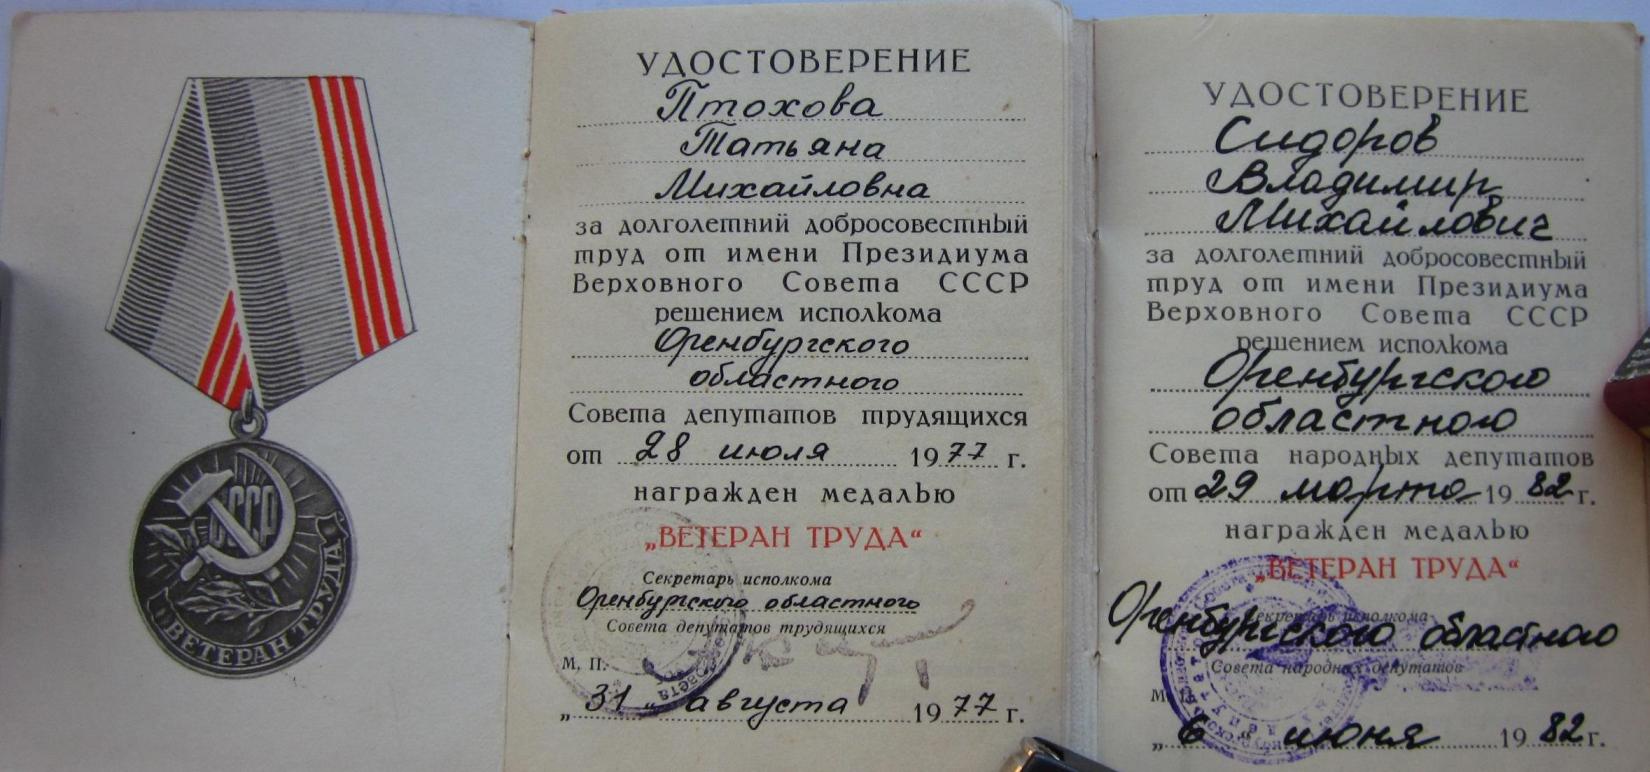 СССР
ВЕТЕРАН ТРУДА
УДОСТОВЕРЕНИЕ
Птохова
Татьяна
Михайловна
за долголетний добросовестный
труд от имени Президиума
Верховного Совета СССР
решением исполкома
Оренбургского
областного
Совета депутатов трудящихся
от 28 июля 1977 г.
награжден медалью
„ВЕТЕРАН ТРУДА“
Секретарь исполкома
Оренбургского областного
Совета депутатов трудящихся
М. П.
„31“ августа 1977 г.
УДОСТОВЕРЕНИЕ
Сидоров
Владимир
Михайлович
за долголетний добросовестный
труд от имени Президиума
Верховного Совета СССР
решением исполкома
Оренбургского
областного
Совета народных депутатов
от 29 марта 1982 г.
награжден медалью
„ВЕТЕРАН ТРУДА“
Секретарь исполкома
Оренбургского областного
Совета народных депутатов
М. П.
„6“ июня 1982 г.